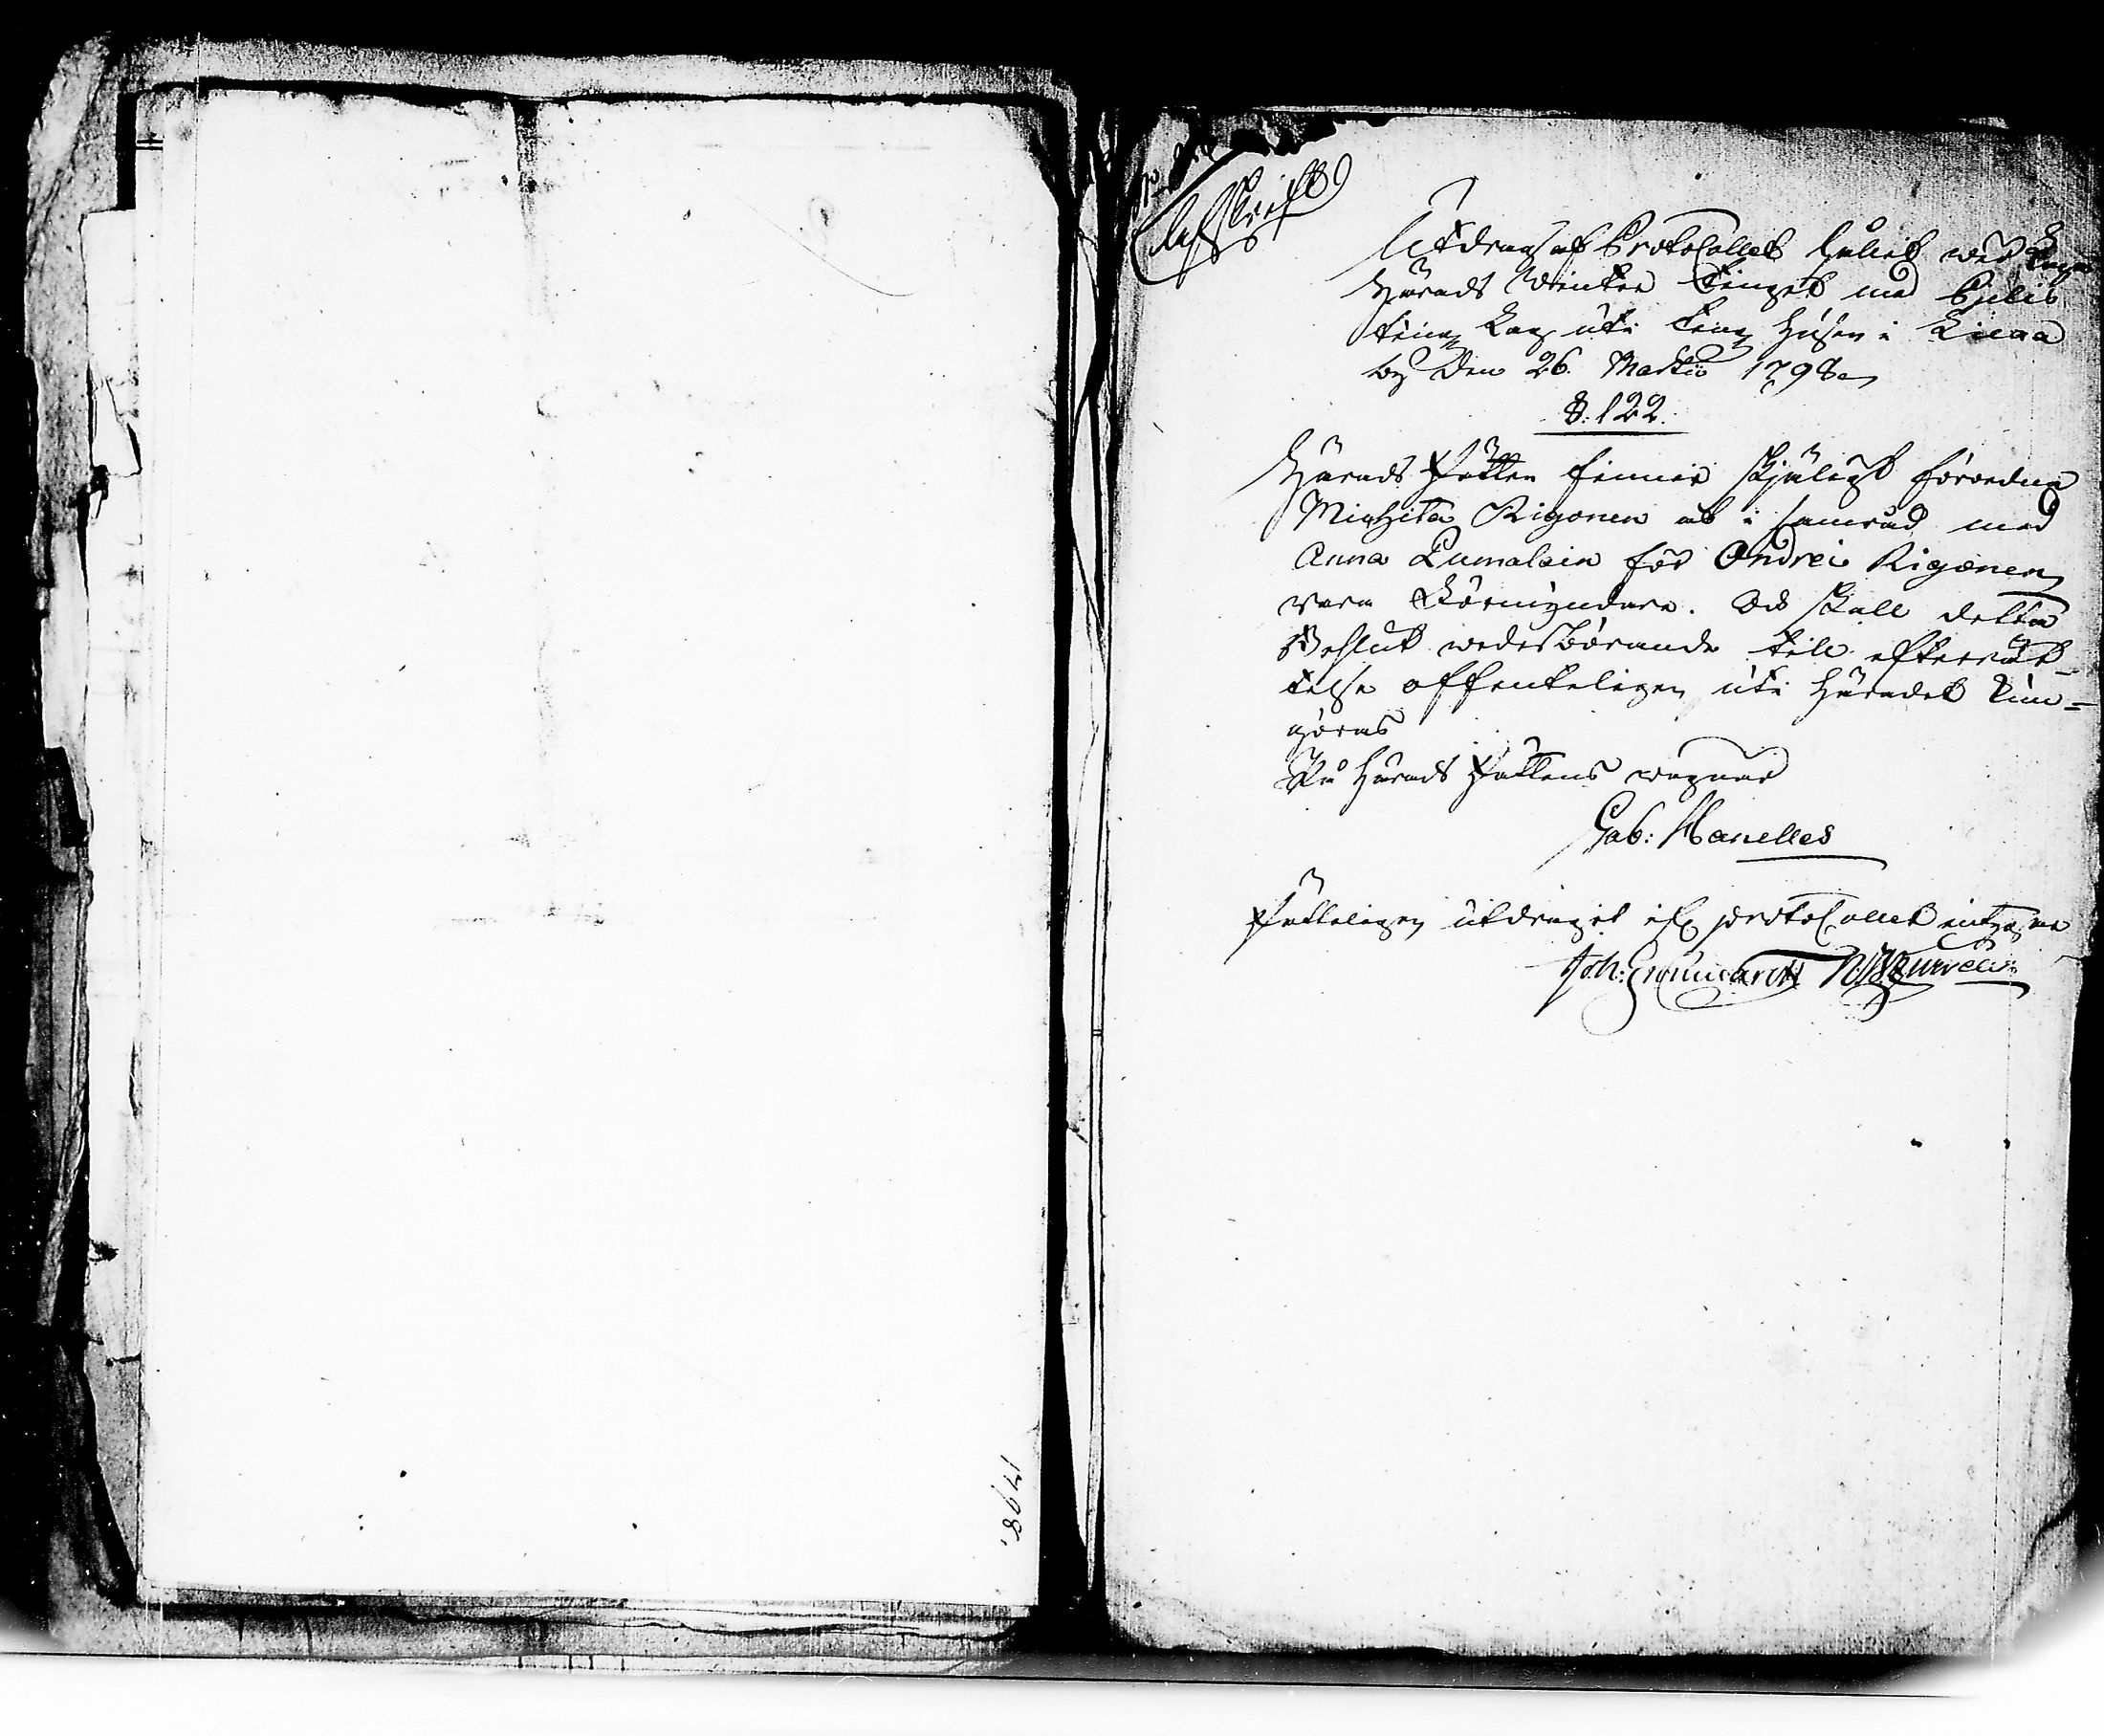 1798.
Afskrift
Utdrag af Protocollet hållit wid Laga
Härads Winter Tinget med Pelis
tings Lag uti Ting Huset i
by den 26. Martii 1798
§. 122.
Härads Rätten finner skjäligt förordna
Michita Rigonen at i samråd med
Anna Lumalain för Ondrei Rigonen
wara Förmyndare. Och skall detta
Beslut wederbörande till efterrät-
telse offenteligen uti Häradet kun=
göras
På Härads Rättens wägnar
Gab: Hanelles
Rätteligen utdragit ifr protocollet intyga
Joh: